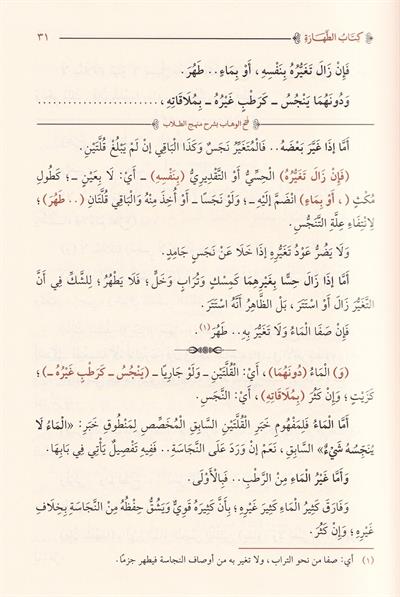 كِتَابُ الطَّهَارَةِ ٣١
فَإِنْ زَالَ تَغَيُّرُهُ بِنَفْسِهِ، أَوْ بِمَاءٍ.. طَهُرَ.
وَدُونَهُمَا يَنْجُسُ ـ كَرَطْبٍ غَيْرُهُ ـ بِمُلَاقَاتِهِ، ...................
فتح الوهاب بشرح منهج الطلاب
أَمَّا إِذَا غَيَّرَ بَعْضَهُ.. فَالْمُتَغَيِّرُ نَجَسٌ وَكَذَا الْبَاقِي إِنْ لَمْ يَبْلُغْ قُلَّتَيْنِ.
(فَإِنْ زَالَ تَغَيُّرُهُ) الْحِسِّيُّ أَوْ التَّقْدِيرِيُّ (بِنَفْسِهِ) ـ أَيْ: لَا بِعَيْنٍ ـ؛ كَطُولِ
مُكْثٍ (، أَوْ بِمَاءٍ) انْضَمَّ إِلَيْهِ ـ؛ وَلَوْ نَجَسًا ـ أَوْ أُخِذَ مِنْهُ وَالْبَاقِي قُلَّتَانِ (.. طَهُرَ)؛
لِانْتِفَاءِ عِلَّةِ التَّنَجُّسِ.
وَلَا يَضُرُّ عَوْدُ تَغَيُّرِهِ إِذَا خَلَا عَنْ نَجَسٍ جَامِدٍ.
أَمَّا إِذَا زَالَ حِسًّا بِغَيْرِهِمَا كَمِسْكٍ وَتُرَابٍ وَخَلٍّ؛ فَلَا يَطْهُرُ؛ لِلشَّكِّ فِي أَنَّ
التَّغَيُّرَ زَالَ أَوْ اسْتَتَرَ، بَلْ الظَّاهِرُ أَنَّهُ اسْتَتَرَ.
فَإِنْ صَفَا الْمَاءُ وَلَا تَغَيُّرَ بِهِ.. طَهُرَ(١).
(وَ) الْمَاءُ (دُونَهُمَا)، أَيْ: الْقُلَّتَيْنِ ـ وَلَوْ جَارِيًا ـ (يَنْجُسُ ـ كَرَطْبٍ غَيْرُهُ ـ)؛
كَزَيْتٍ؛ وَإِنْ كَثُرَ (بِمُلَاقَاتِهِ)، أَيْ: النَّجَسِ.
أَمَّا الْمَاءُ فَلِمَفْهُومِ خَبَرِ الْقُلَّتَيْنِ السَّابِقِ الْمُخَصِّصِ لِمَنْطُوقِ خَبَرِ: «الْمَاءُ لَا
يُنَجِّسُهُ شَيْءٌ» السَّابِقِ، نَعَمْ إِنْ وَرَدَ عَلَى النَّجَاسَةِ.. فَفِيهِ تَفْصِيلٌ يَأْتِي فِي بَابِهَا.
وَأَمَّا غَيْرُ الْمَاءِ مِنْ الرَّطْبِ.. فَبِالْأَوْلَى.
وَفَارَقَ كَثِيرُ الْمَاءِ كَثِيرَ غَيْرِهِ؛ بِأَنَّ كَثِيرَهُ قَوِيٌّ وَيَشُقُّ حِفْظُهُ مِنْ النَّجَاسَةِ بِخِلَافِ
غَيْرِهِ؛ وَإِنْ كَثُرَ.
(١) أي: صفا من نحو التراب، ولا تغير به من أوصاف النجاسة فيطهر جزمًا.